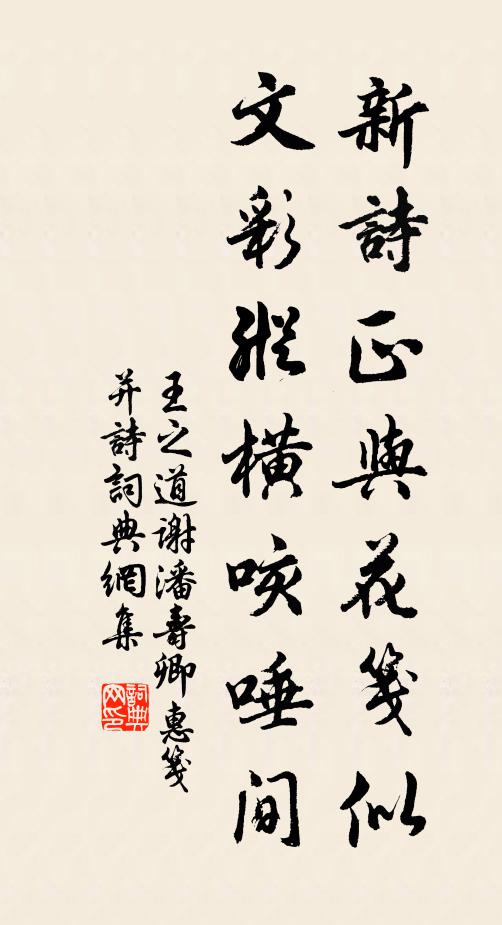 新詩正與花箋似
文彩縱橫咳唾間
王之道謝潘壽卿惠箋
并詩詞典網集
詞典網印